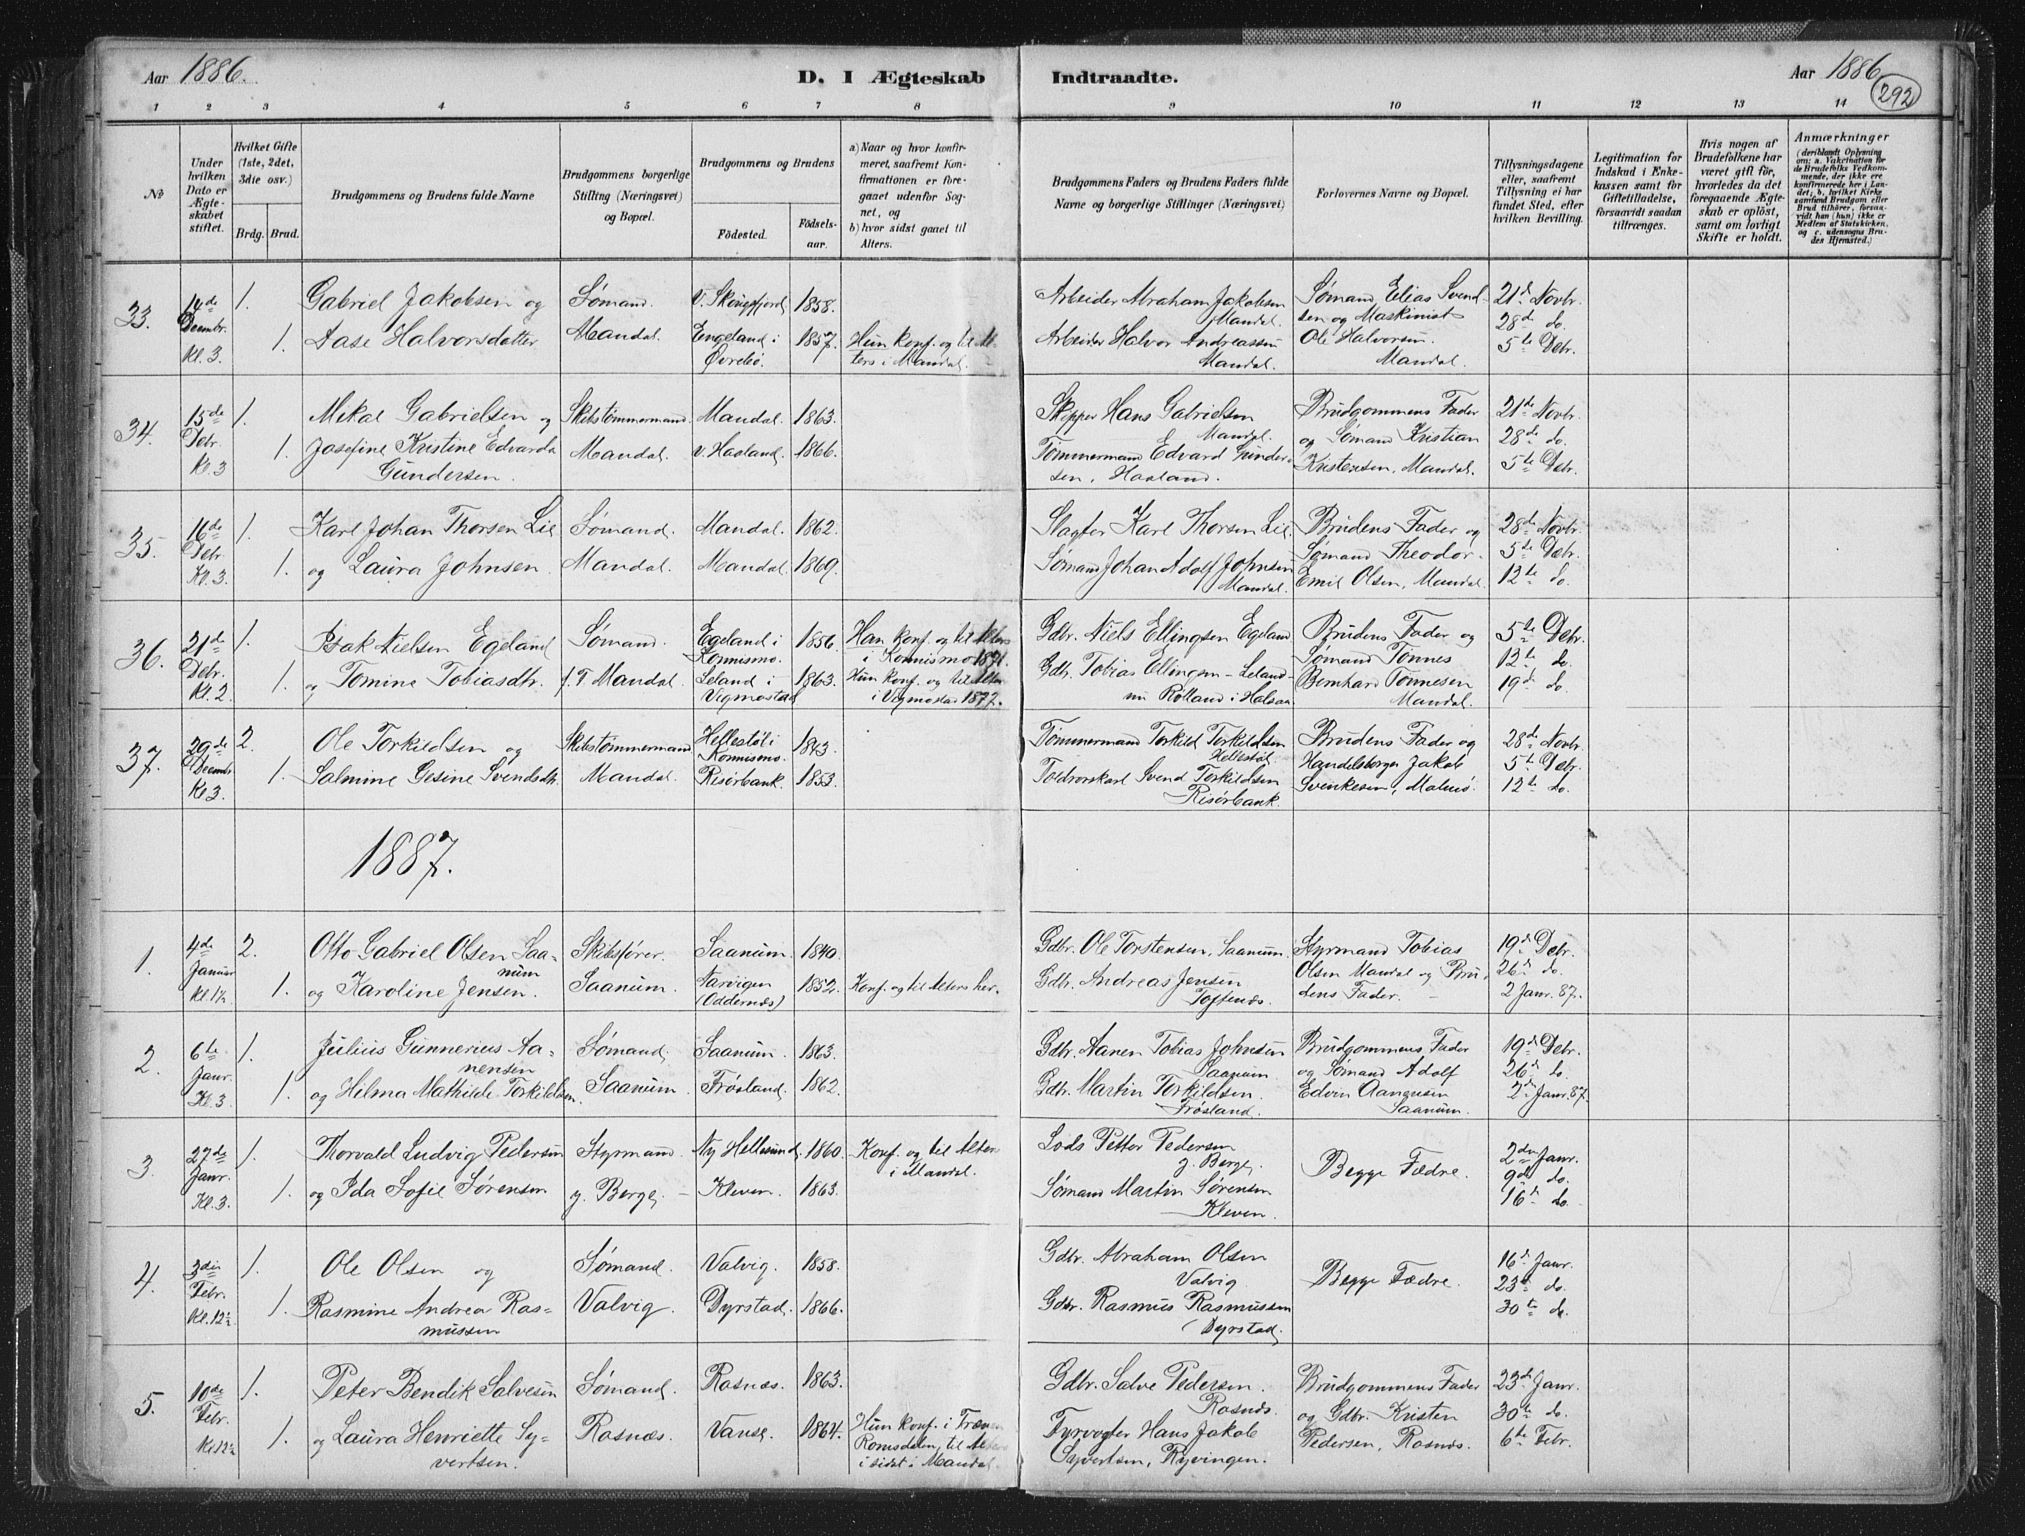 Aar 1886.
D. I Ægteskab
Indtraadte.
Aar 1886
292
1 2 3 4 5 6 7 8 9 10 11 12 13 14
No
Under hvilken Dato er Ægteskabet stiftet.
Hvilket Gifte (1ste, 2det, 3die osv.)
Brdg. Brud.
Brudgommens og Brudens fulde Navne
Brudgommens borgerlige Stilling (Næringsvei) og Bopæl.
Brudgommens og Brudens
Födested.
Födselsaar.
a) Naar og hvor konfirmeret, saafremt Konfirmationen er foregaaet udenfor Sognet, og
b) hvor sidst gaaet til Alters.
Brudgommens Faders og Brudens Faders fulde Navne og borgerlige Stillinger (Næringsvei)
Forlovernes Navne og Bopæl.
Tillysningsdagene eller, saafremt Tillysning ei har fundet Sted, efter hvilken Bevilling.
Legitimation for Indskud i Enkekassen samt for Giftetilladelse, forsaavidt saadan tiltrænges.
Hvis nogen af Brudefolkene har været gift før, hvorledes da det foregaaende Ægteskab er oplöst, samt om lovligt Skifte er holdt.
Anmærkninger
(deriblandt Oplysning om: a. Vakcination for de Brudefolks Vedkommende, der ikke ere konfirmerede her i Landet; b. hvilket Kirkesamfund Brudgom eller Brud tilhörer, forsaavidt han (hun) ikke er Medlem af Statskirken, og c. udensogns Brudes Hjemsted.)
33. 14de Decembr. Kl. 3 1. 1.
Gabriel Jakobsen og
Aase Halvorsdatter
Sømand.
Mandal.
V. Skogsfjord 1858.
Engeland i Øvrebø. 1857.
Hun konf. og til Alters i Mandal.
Arbeider Abraham Jakobsen
Mandal.
Arbeider Halvor Andreassen
Mandal.
Sømand Elias Svendsen og Maskinist
Ole Halvorsen.
Mandal.
21de Novbr.
28de do.
5te Debr.
34. 15de Debr. Kl. 3 1. 1.
Mikal Gabrielsen og
Josefine Kristine Edvarda
Gundersen.
Skibstømmermand
Mandal.
Mandal. 1863.
v. Haaland. 1866.
Skipper Hans Gabrielsen
Mandal.
Tømmermand Edvard Gundersen, Haaland.
Brudgommens Fader
og Sømand Kristian
Kristensen, Mandal.
21de Novbr.
28de do.
5te Debr.
35. 16de Debr. Kl. 3. 1. 1.
Karl Johan Thorsen Lie
og Laura Johnsen.
Sømand.
Mandal.
Mandal. 1862.
Mandal. 1869.
Slagter Karl Thorsen Lie.
Sømand Johan Adolf Johnsen
Mandal.
Brudens Fader og
Sømand Theodor
Emil Olsen, Mandal.
28de Novbr.
5te Debr.
12te do.
36. 21de Debr. Kl. 2. 1. 1.
Isak Nielsen Egeland
og Tomine Tobiasdtr.
Sømand.
f. T. Mandal.
Egeland i Konnismo. 1856.
Leland i Vigmostad 1863.
Han konf. og til Alters
i Konnismo 1871.
Hun konf. og til Alters
i Vigmostad 1877.
Gdbr. Niels Ellingsen Egeland
Gdbr. Tobias Ellingsen - Leland
nu Rolland i Halsaa
Brudens Fader og
Sømand Tønnes
Bernhard Tønnesen
Mandal.
5te Debr.
12te do.
19de do.
37. 29de Decembr. Kl. 3. 2. 1.
Ole Torkildsen og
Salmine Gesine Svendsdtr.
Skibstømmermand
Mandal.
Hellestøl i Konnismo. 1843.
Risørbank. 1853.
Tømmermand Torkild Torkildsen
Hellestøl
Toldrorskarl Svend Torkildsen
Risørbank.
Brudens Fader og
Handelsborger Jakob
Svenkesen, Malmø.
28de Novbr.
5te Debr.
12te do.
1887.
1. 4de Januar 2. 1.
Otto Gabriel Olsen Saanum
og Karoline Jensen.
Skibsfører.
Saanum.
Saanum. 1840.
Narvigen (Oddernæs) 1852.
Konf. og til Alters her.
Gdbr. Ole Torstensen, Saanum.
Gdbr. Andreas Jensen
Toftenæs.
Styrmand Tobias
Olsen Mandal og Brudens Fader.
19de Debr.
26de do.
2 Janr. 87.
2. 6te Janr. Kl. 3 1. 1.
Julius Gunnerius Aanensen
og Helma Mathilde Torkildsen.
Sømand.
Saanum.
Saanum. 1863.
Frøsland. 1862.
Gdbr. Aanen Tobias Johnsen
Saanum
Gdbr. Martin Torkildsen.
Frøsland.
Brudgommens Fader
og Sømand Adolf
Edvin Aanensen
Saanum.
19de Debr.
26de do.
2den Janr. 87.
3. 27de Janr. Kl. 3. 1. 1.
Thorvald Ludvig Pedersen
og Ida Sofie Sørensen
Styrmand.
y. Berge.
Ny Hellesund. 1860.
Kleven. 1863.
Konf. og til Alters
i Mandal.
Lods Petter Pedersen
y. Berge.
Sømand Martin Sørensen
Kleven.
Begge Fædre.
2den Janr.
9de do.
16de do.
4. 3die Febr. Kl. 12½ 1. 1.
Ole Olsen og
Rasmine Andrea Rasmussen
Sømand.
Valvig.
Valvig. 1858.
Dyrstad. 1866.
Gdbr. Abraham Olsen
Valvig.
Gdbr. Rasmus Rasmussen
Dyrstad.
Begge Fædre.
16de Janr.
23de do.
30te do.
5. 10de Febr. Kl 12½ 1. 1.
Peter Bendik Salvesen
og Laura Henriette Syvertsen.
Sømand.
Rosnæs.
Rosnæs. 1863.
Vanse. 1864.
Hun konf. i
Romsdalen, til Alters
i sidst i Mandal.
Gdbr. Salve Pedersen.
Rosnæs.
Fyrvogter Hans Jakob
Syvertsen, Ryvingen.
Brudgommens Fader
og Gdbr. Kristen
Pedersen, Rosnæs.
23de Janr.
30te do.
6te Febr.